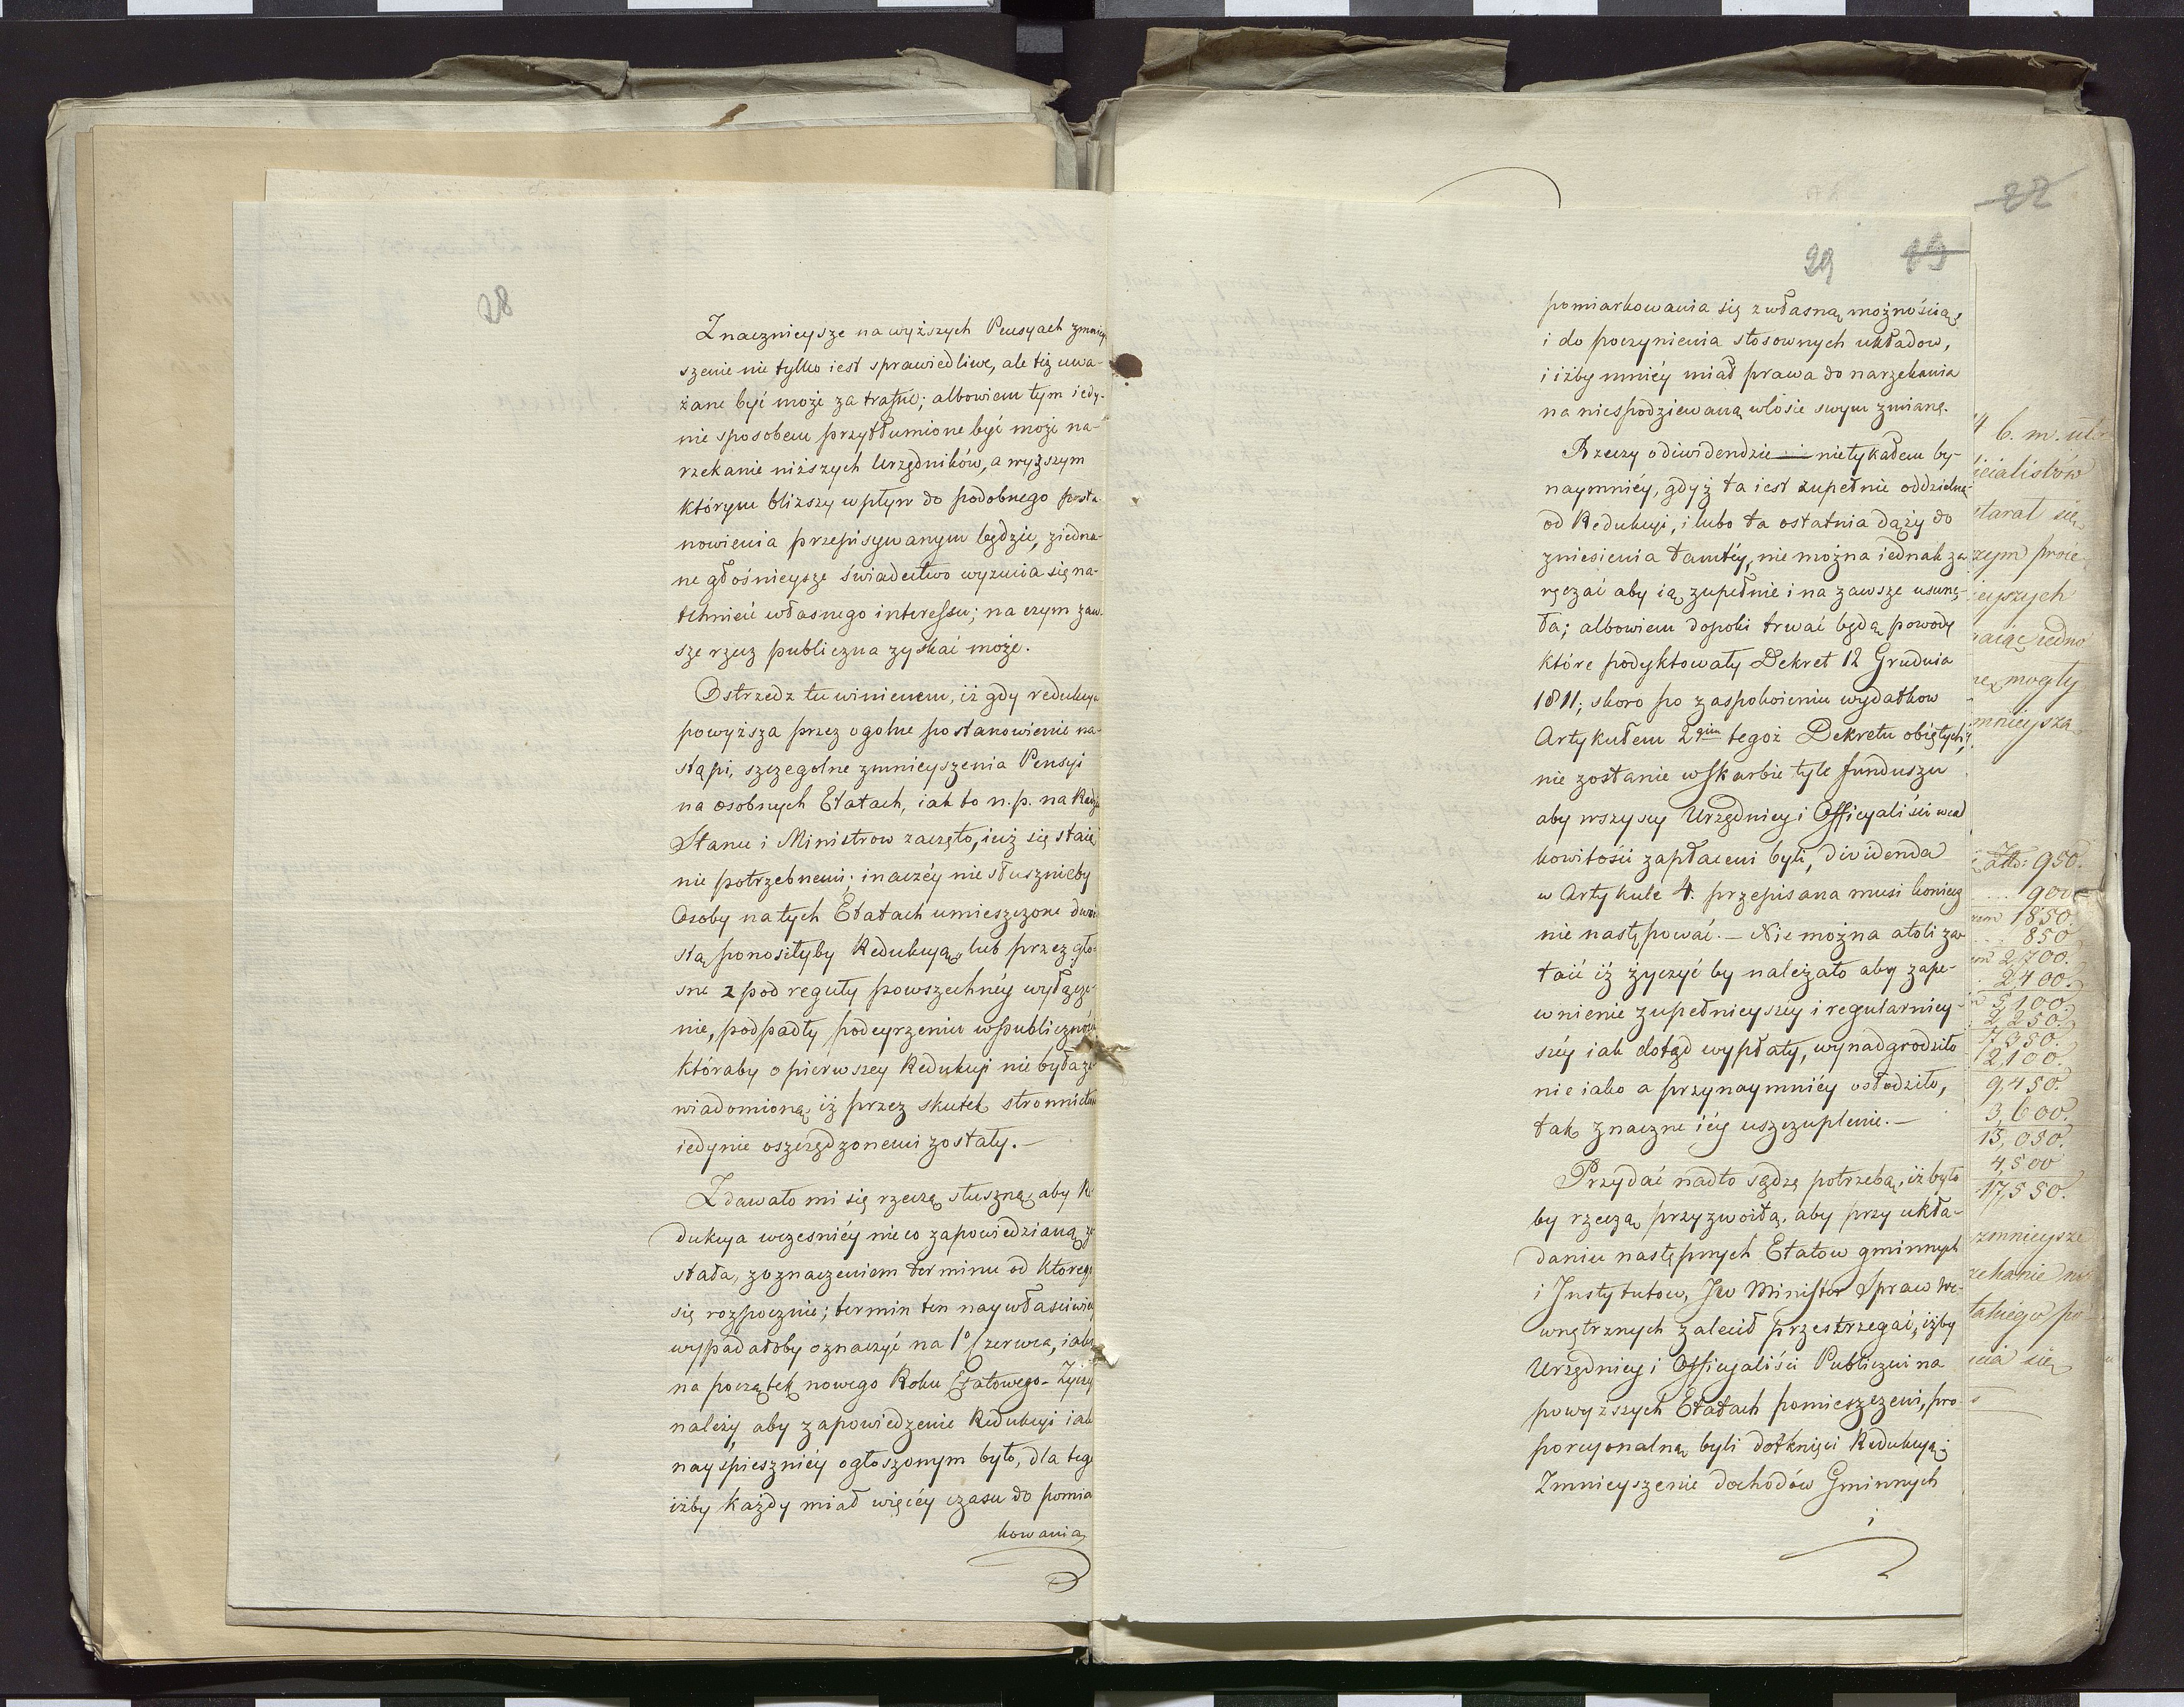 28
Znacznieysze na wyższych Pensyach zmniey-
szenie nie tylko iest sprawiedliwe, ale też uwa-
żane być może za trafne; albowiem tym iedy-
nie sposobem przytłumione być może na-
rzekanie niższych Urzędników, a wyższym
którym bliższy wpływ do podobnego posta-
nowienia przepisywanym będzie, ziedna-
ne głośnieysze świadectwo wyzucia się na-
tchnień własnego interessu; na czym zaw-
sze rzecz publiczna zyskać może.
Ostrzedz tu winienem, iż gdy redukcya
powyższa przez ogolne postanowienie na-
stąpi, szczegolne zmnieyszenia Pensyi
na osobnych Etatach, iak to n. p. na Radzie
Stanu i Ministrow zaczęto, iuż się staią
nie potrzebnemi; inaczéy niesłusznieby
Osoby na tych Etatach umieszczone dwoi-
stą ponosiłyby Redukcyą, lub przez gło-
sne z pod reguły powszechnéy wyłącze-
nie, podpadły podeyrzeniu w publiczności
któraby o pierwszey Redukcyi nie była za-
wiadomioną, iż przez skutek stronnictwa
iedynie oszczędzonemi zostały.—
Zdawało mi się rzeczą słuszną, aby Re-
dukcya wcześniéy nieco zapowiedzianą zo-
stała, z oznaczeniem terminu od którego
się rozpocznie; termin ten naywłaściwiey
wypadałoby oznaczyć na 1o Czerwca, iako
na początek nowego Roku Etatowego. Życzyć
należy, aby zapowiedzenie Redukcyi iak
nayśpieszniéy ogłoszonym było, dla tego
iżby każdy miał więcéy czasu do pomiar
kowania
22
29 19
pomiarkowania się z własną możnością,
i do poczynienia stosownych układow,
i iżby mniéy miał prawa do narzekania
na niespodziewaną w losie swym zmianę.
Rzeczy o diwidendzie — nietykałem by-
naymniéy, gdyż ta iest zupełnie oddzielną
od Redukcyi, i lubo ta ostatnia dąży do
zniesienia tamtéy, nie można iednak za-
ręczać aby ią zupełnie i na zawsze usunę-
ła; albowiem dopoki trwać będą powody
które podyktowały Dekret 12 Grudnia
1811; skoro po zaspokoieniu wydatkow
Artykułem 2gim tegoż Dekretu obiętych,
nie zostanie w Skarbie tyle funduszu
aby wszyscy Urzędnicy i Officyaliści w cał
kowitości zapłaceni byli, dividenda
w Artykule 4. przepisana musi koniecz
nie następować.— Nie można atoli za-
taić iż życzyć by należało aby zape-
wnienie zupełnieyszéy i regularniey-
széy iak dotąd wypłaty, wynadgrodziło
nieiako a przynaymniéy osłodziło,
tak znaczne iéy uszczuplenie.—
Przydać nadto sądzę potrzebą, iż było
by rzeczą przyzwoitą, aby przy ukła-
daniu następnych Etatow gminnych
i Instytutow, JW Minister Spraw We-
wnętrznych zalecił przestrzegać, iżby
Urzędnicy i Officyaliści Publiczni na
powyższych Etatach pomieszczeni, pro-
porcyonalną byli dotknięci Redukcyą;
Zmnieyszenie dochodów Gminnych
i
icialistów
starał się
mogły
mnieysza
950.
900
1850.
850
2,700.
2,400.
5,100
2,250.
7,350.
2,100.
9,450.
3,600.
13,050.
4,500
17,550.
zmnieysze
takiego po